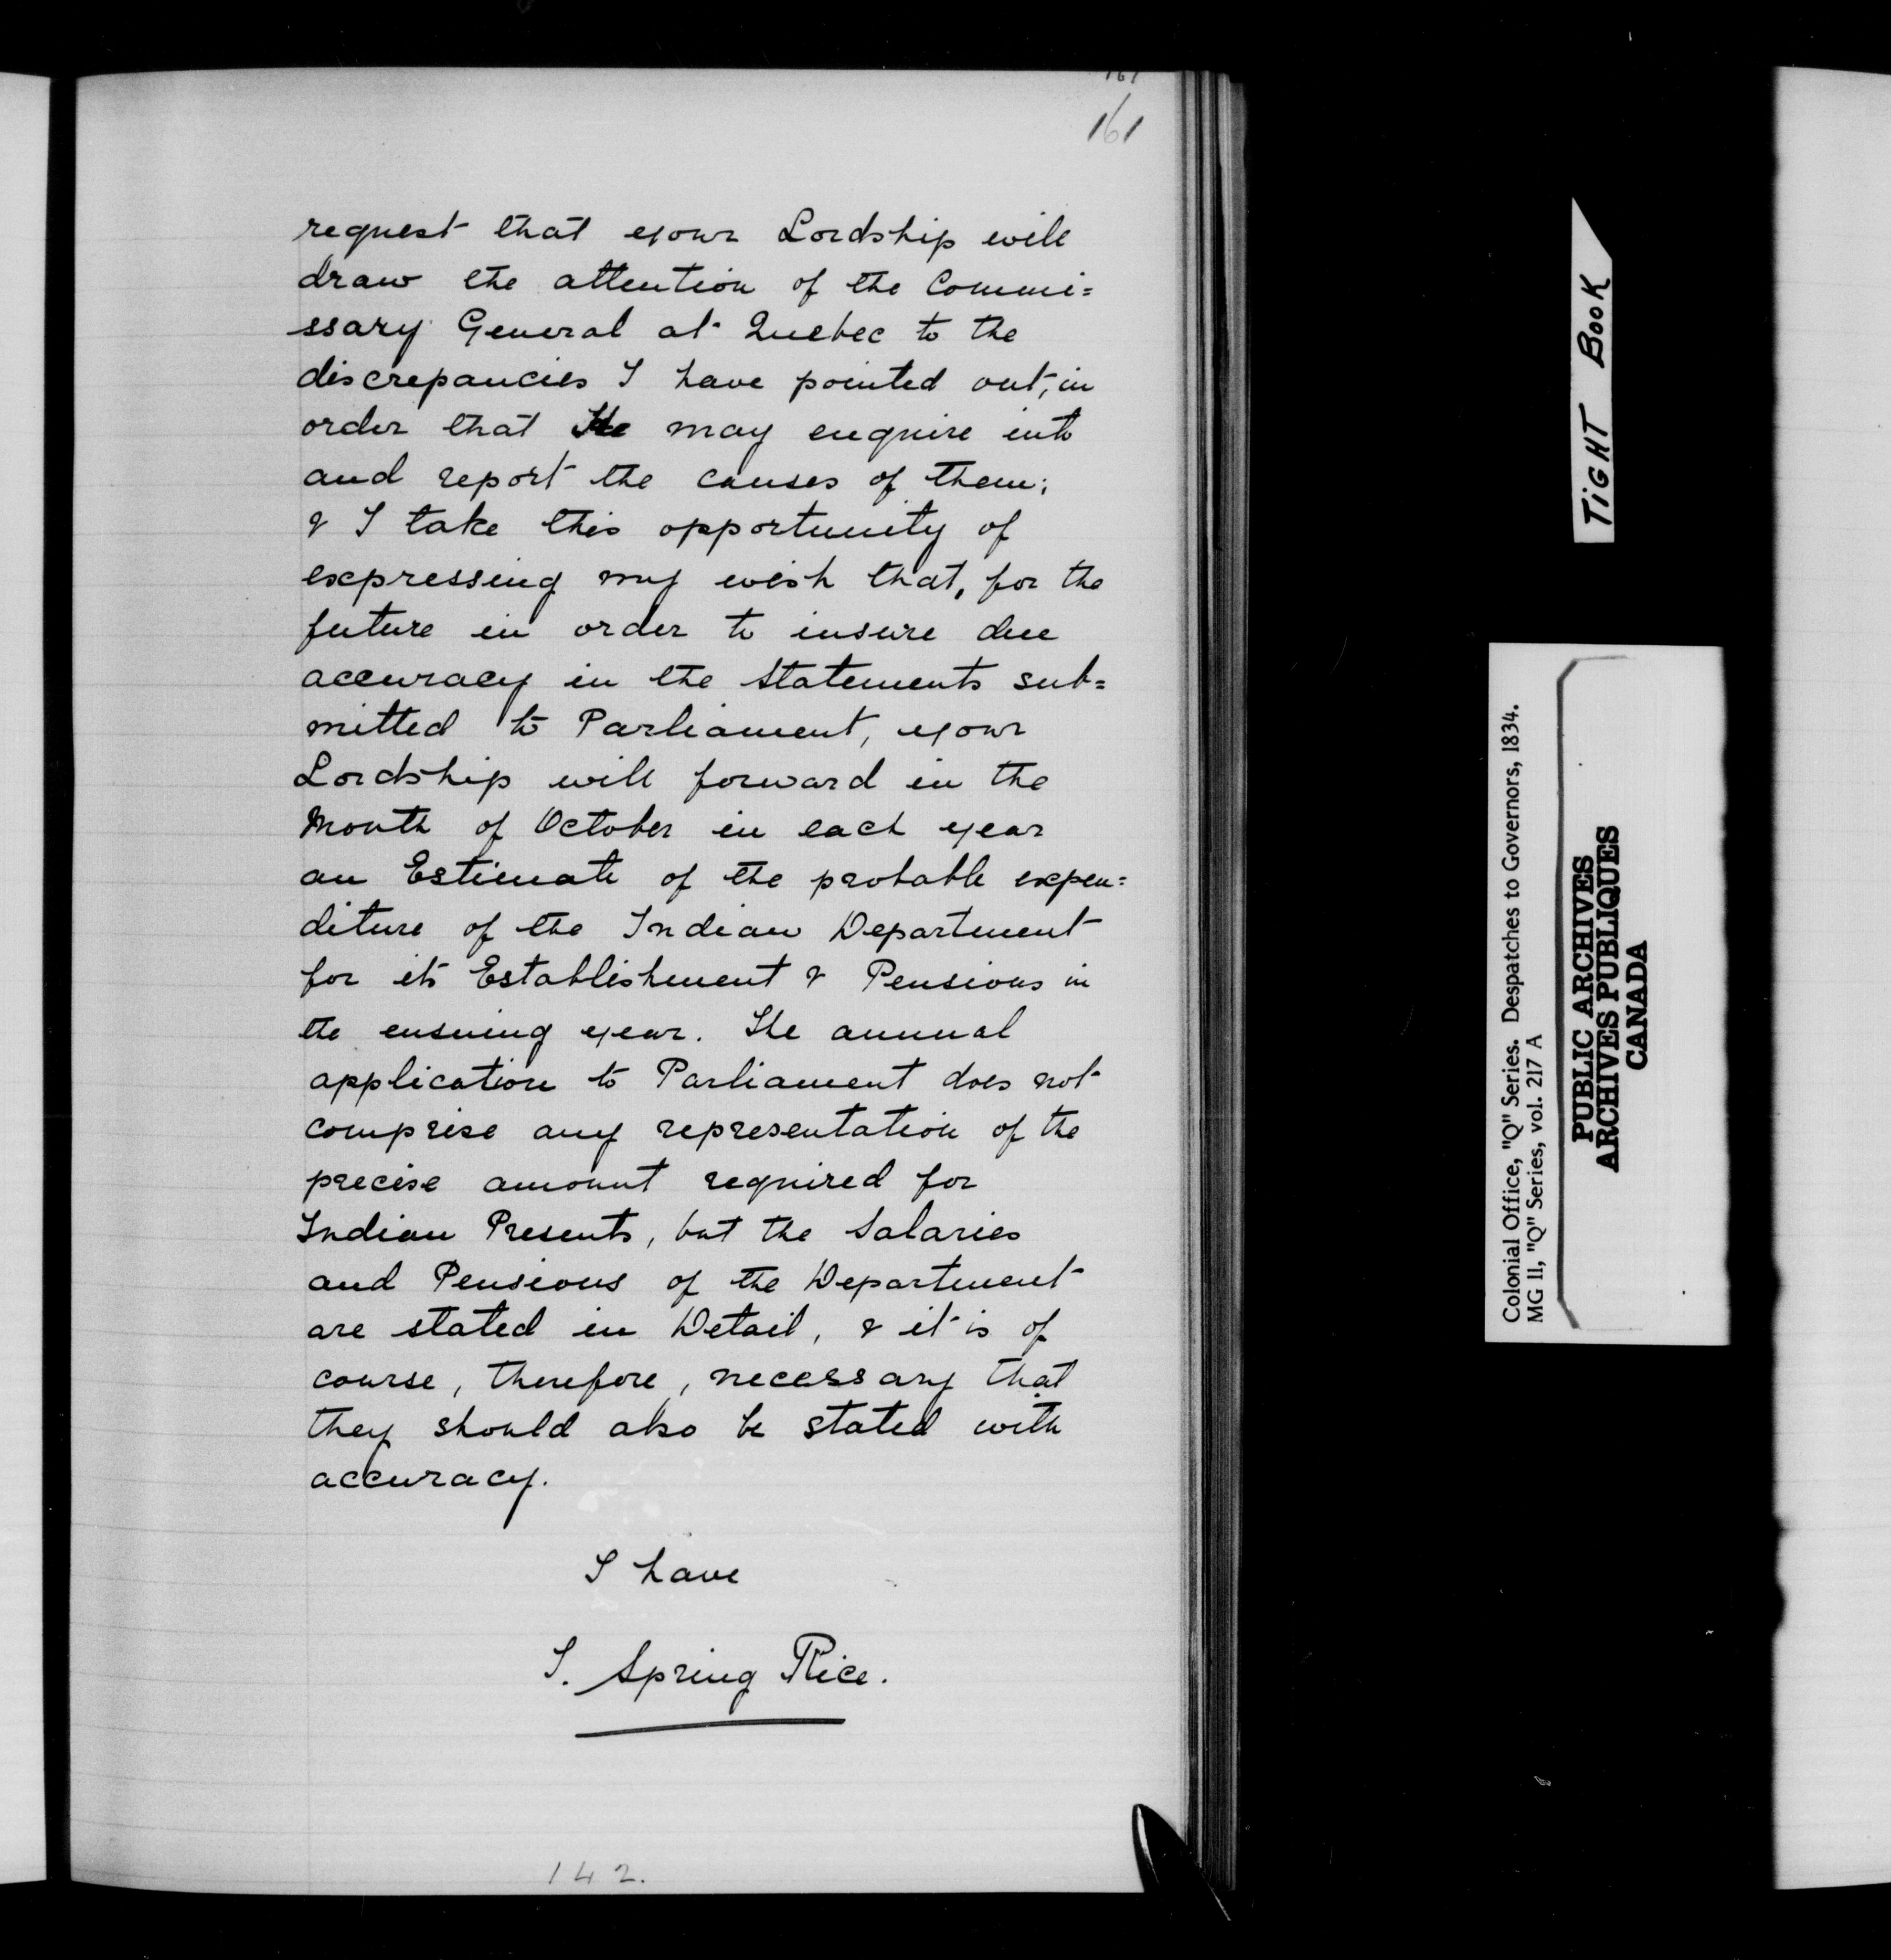 161
161
request that your Lordship will
draw the attention of the Commi=
ssary General at Quebec to the
discrepancies I have pointed out, in
order that He may enquire into
and report the causes of them;
& I take this opportunity of
expressing my wish that, for the
future in order to insure due
accuracy in the Statements sub=
mitted to Parliament, your
Lordship will forward in the
Month of October in each year
an Estimate of the probable expen=
diture of the Indian Department
for its Establishment & Pensions in
the ensuing year. The annual
application to Parliament does not
comprise any representation of the
precise amount required for
Indian Presents, but the Salaries
and Pensions of the Department
are stated in Detail, & it is of
course, therefore, necessary that
they should also be stated with
accuracy.
I have
T. Spring Rice.
142.
TIGHT BOOK
Colonial Office, "Q" Series. Despatches to Governors, 1834.
MG 11, "Q" Series, vol. 217 A
PUBLIC ARCHIVES
ARCHIVES PUBLIQUES
CANADA